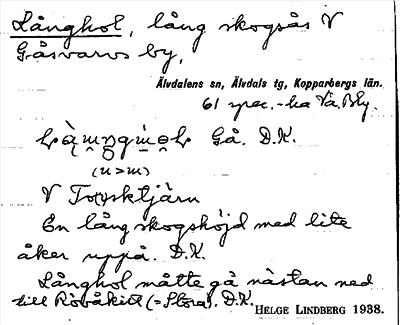 Långhol, lång skogsås V
Gåsvarvs by,
Älvdalens sn, Älvdals tg, Kopparbergs län.
61 spec. - ka Vå. Bly.
Gå. D.K.
(u>m)
V Torrsktjärn
En lång skogshöjd med lite
åker uppå. D.K.
Långhol måtte gå nästan ned
till Risåkitt (= Stora). D.K.
HELGE LINDBERG 1938.